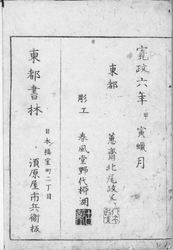 寛政六年甲寅蠟月
東都 蕙齋北尾政美
彫工 春風堂野代柳湖
東都書林
日本橋室町二丁目
須原屋市兵衛板